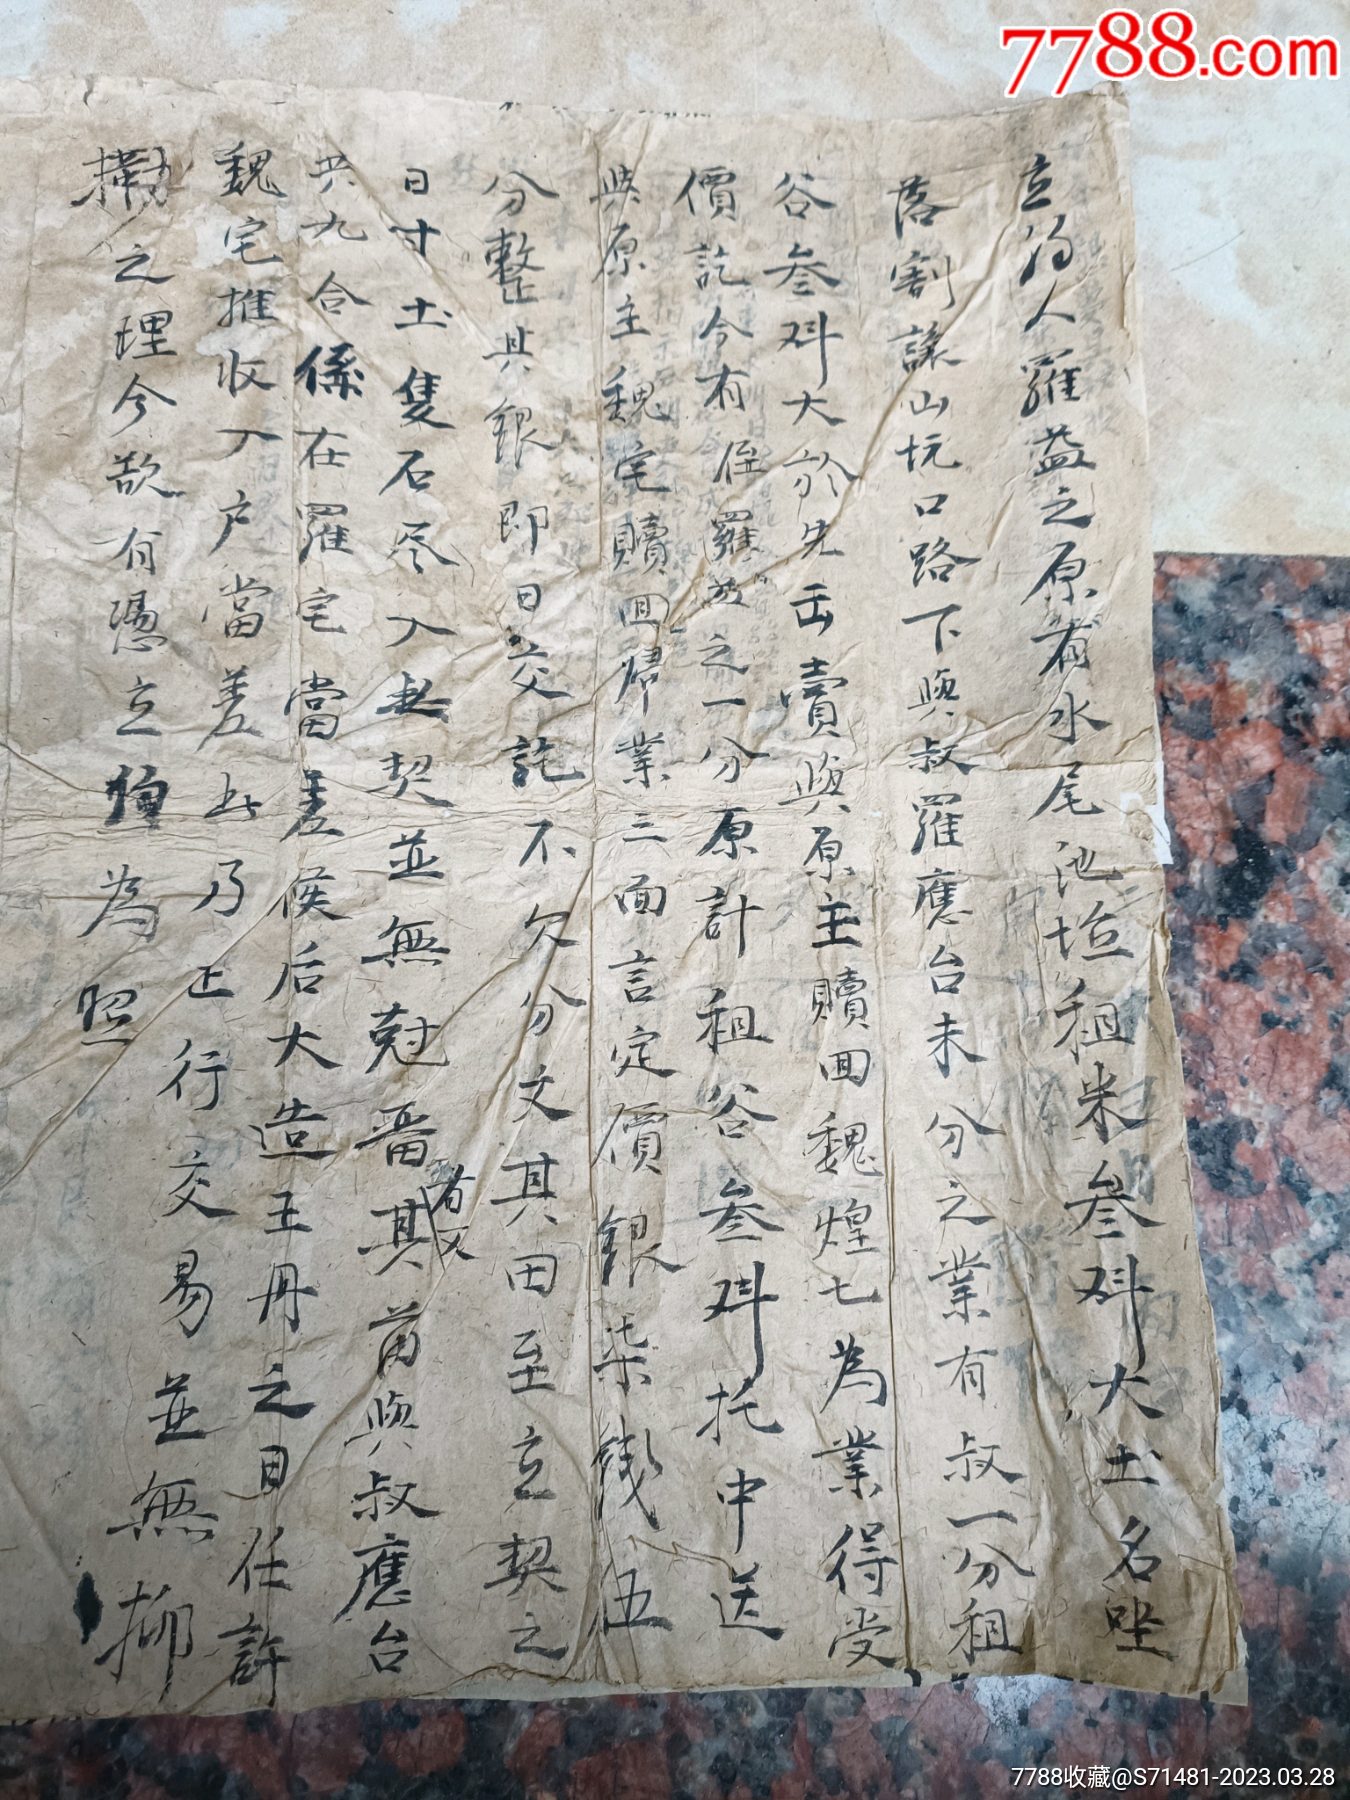 7788.com
立約人羅益之原有水尾池垣租米叁㪷大土名坐
落割讓山坑口路下與叔羅應台未分之業有叔一分租
谷叁㪷大於先年出賣與原主贖回魏煌七為業得受
價訖今有侄羅益之一分原計租谷叁㪷托中送
與原主魏宅贖回歸業三面言定價銀柒錢五
分整其銀即日交訖不欠分文其田至立契之
日寸土隻石尽入契並無尅畨其苗與叔應台
共九合係在羅宅當差候后大造王冊之日任許
魏宅推收入户當差此乃正行交易並無抑
勒之理今欲有憑立約為照
7788收藏@S71481-2023.03.28